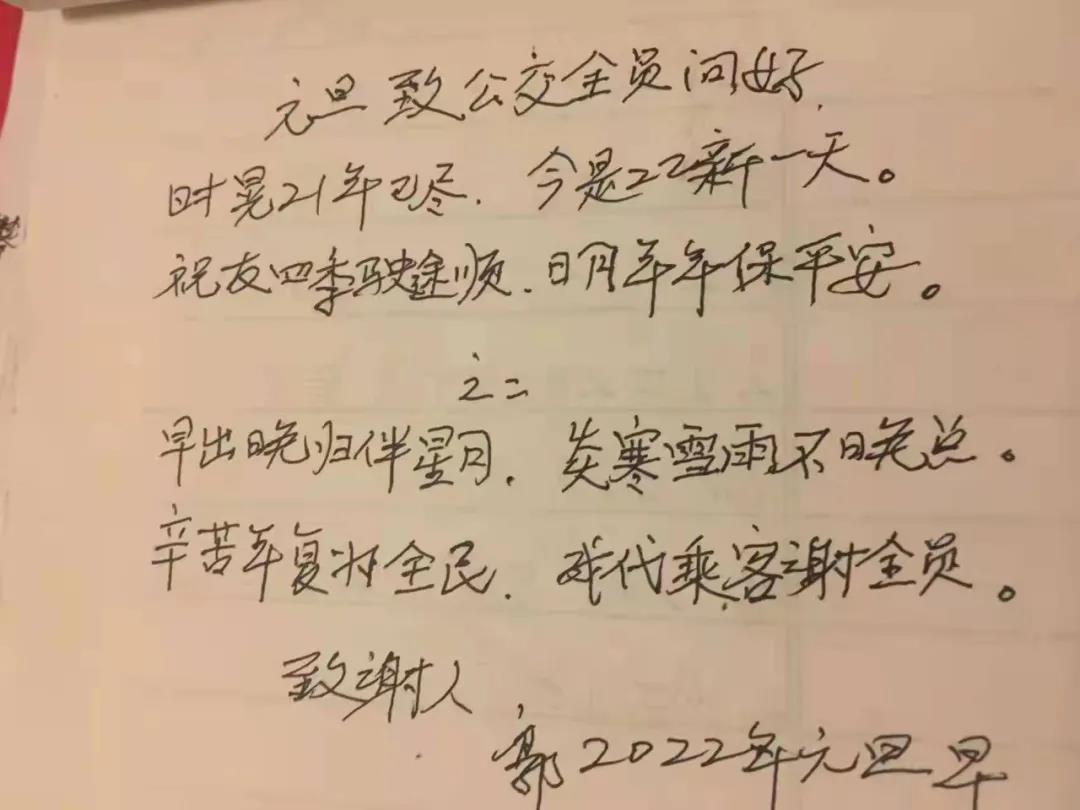 元旦致公交全员问好.
时晃21年已尽.今是22新一天。
祝友四季驶途顺.日月年年保平安。
之二
早出晚归伴星月.炎寒雪雨不晚点。
辛苦年复为全民.我代乘客谢全员。
致谢人
郭2022年元旦早